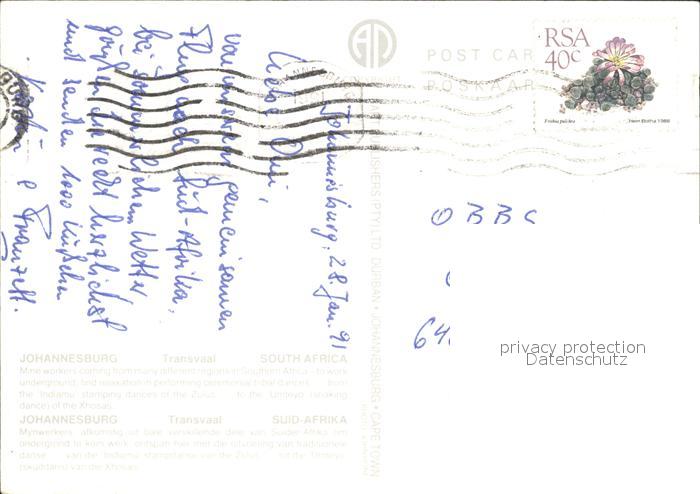 Johannesburg, 28. Jan. 91
von unserem gemeinsamen
Flug nach Süd-Afrika,
bei sommerlichem Wetter
grüßen Dich recht herzlichst
und senden 1000 Küßchen
POST CAR
POSKAAR
RSA
40c
Frithia pulchra
Thein Botha 1988
OBBC
64
privacy protection
Datenschutz
(PTY) LTD DURBAN • JOHANNESBURG • CAPE TOWN
JOHANNESBURG Transvaal SOUTH AFRICA
Mine workers coming from many different regions in Southern Africa – to work
underground, find relaxation in performing ceremonial tribal dances from
the 'Indlamu' stamping dances of the Zulus to the 'Umteyo' (shaking
dance) of the Xhosas.
JOHANNESBURG Transvaal SUID-AFRIKA
Mynwerkers, afkomstig uit baie verskillende dele van Suider Afrika om
ondergrond te kom werk, ontspan hier met die uitvoering van tradisionele
danse van die 'Indlamu' stampdanse van die Zulus tot die 'Umteyo'
(skuddans) van die Xhosas.